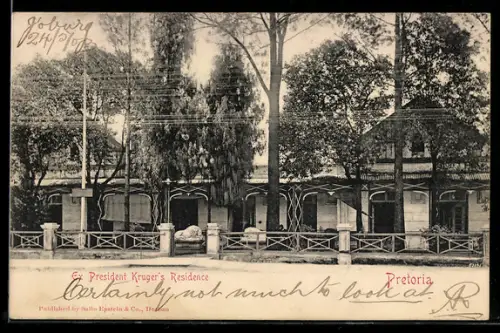 Jo'burg
24/2/01
Ex President Kruger's Residence
Pretoria
Certainly not much to look at.
Published by Sallo Epstein & Co., Durban